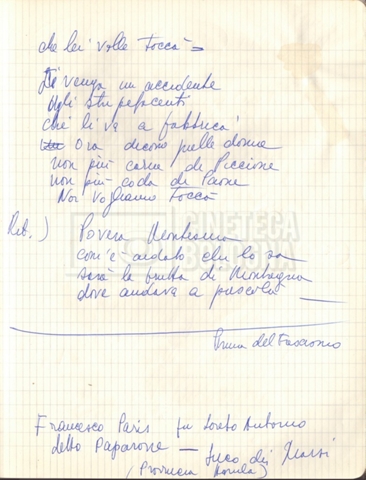 che lei volle toccà
Ti venga un accidente
agli stupefacenti
chi li va a fabbricà
Ora dicono quelle donne
non più carne di Piccione
non più coda di Pavone
Noi Vogliamo Toccà
Rit.) Povera
com'è andato chi lo sa
sarà la frutta di Montagna
dove andava a pascolà
CINETECA
BOLOGNA
Prima del Fascismo
Francesco Paris fu Loreto Antonio
detto Paparone — Luco dei Marsi
(Provincia Aquila)